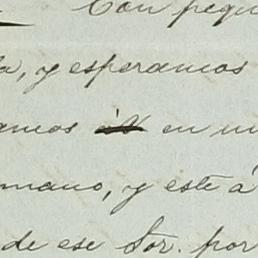 Con pequ
a, y esperamos
amos en un
mano, y este á
de ese Sor. por